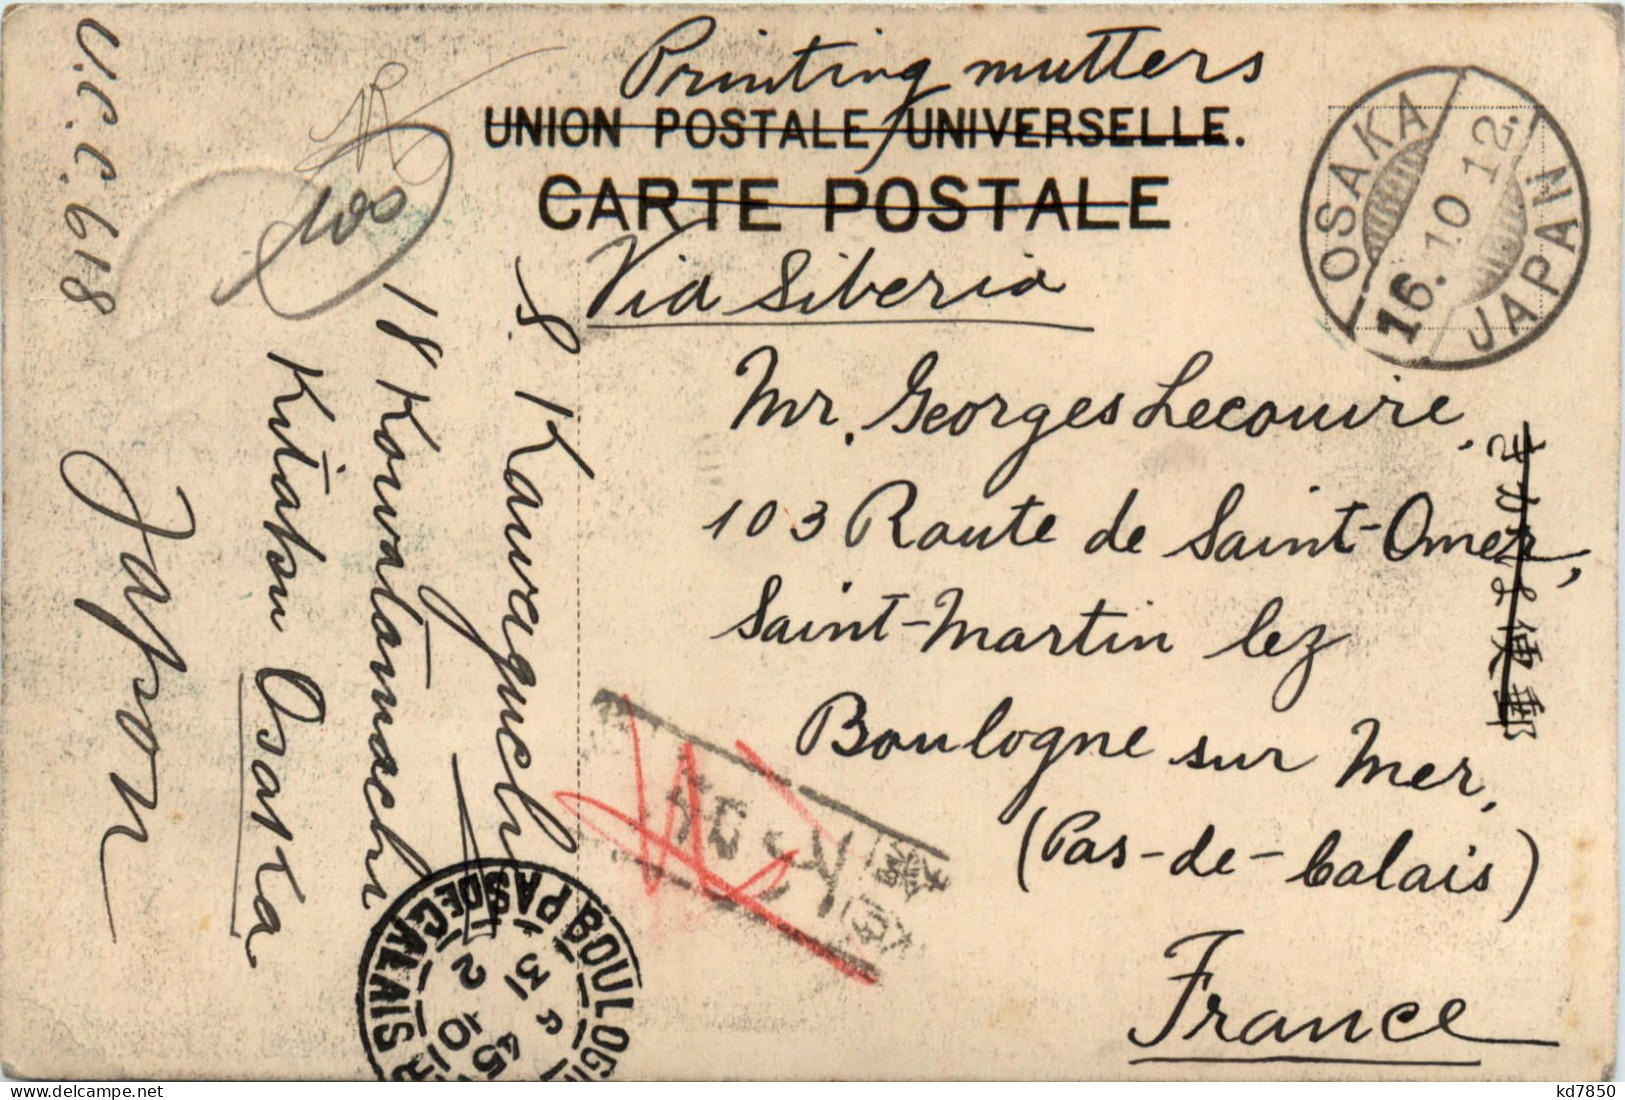 Printing mutters
UNION POSTALE UNIVERSELLE.
CARTE POSTALE
Via Siberia
OSAKA
16.10 12.
JAPAN
Mr. Georges Lecouire,
103 Route de Saint-Omer,
Saint-Martin lez
Boulogne sur Mer,
(Pas-de-Calais)
France
きかは便郵
S. Kawaguchi
18 Kouvatamachi
Kitaku Osaka
Japon
U.C.C. 618
BOULOGNE
PAS DE CALAIS
kd7850